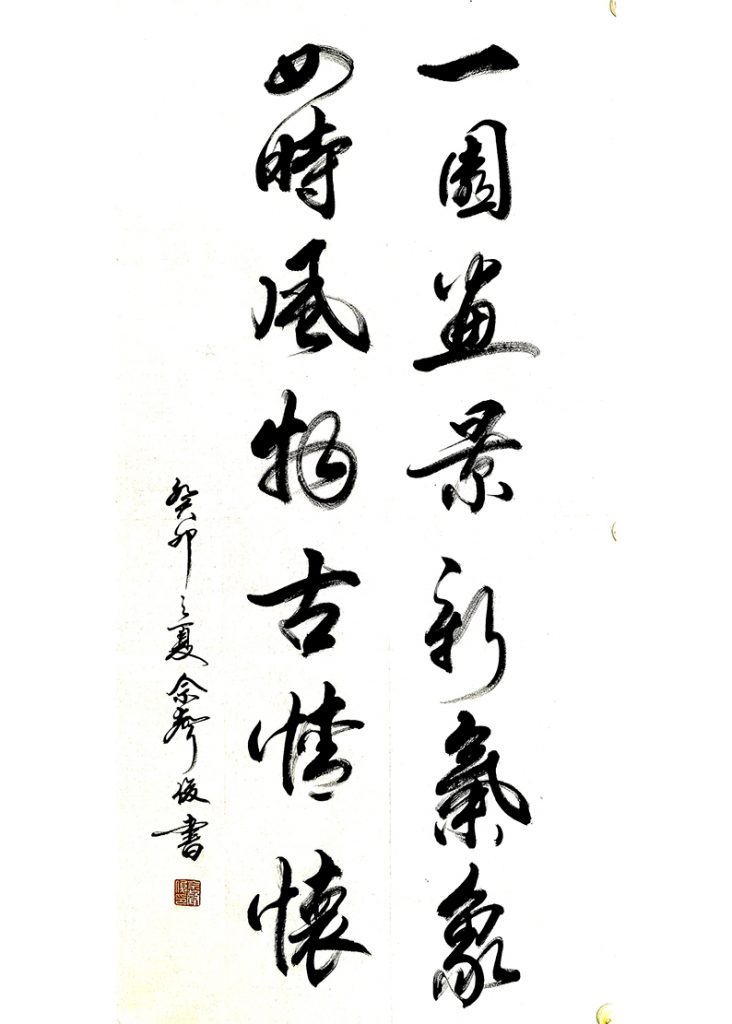 一園畫景新氣象
四時風物古情懷
癸卯之夏佘俊書